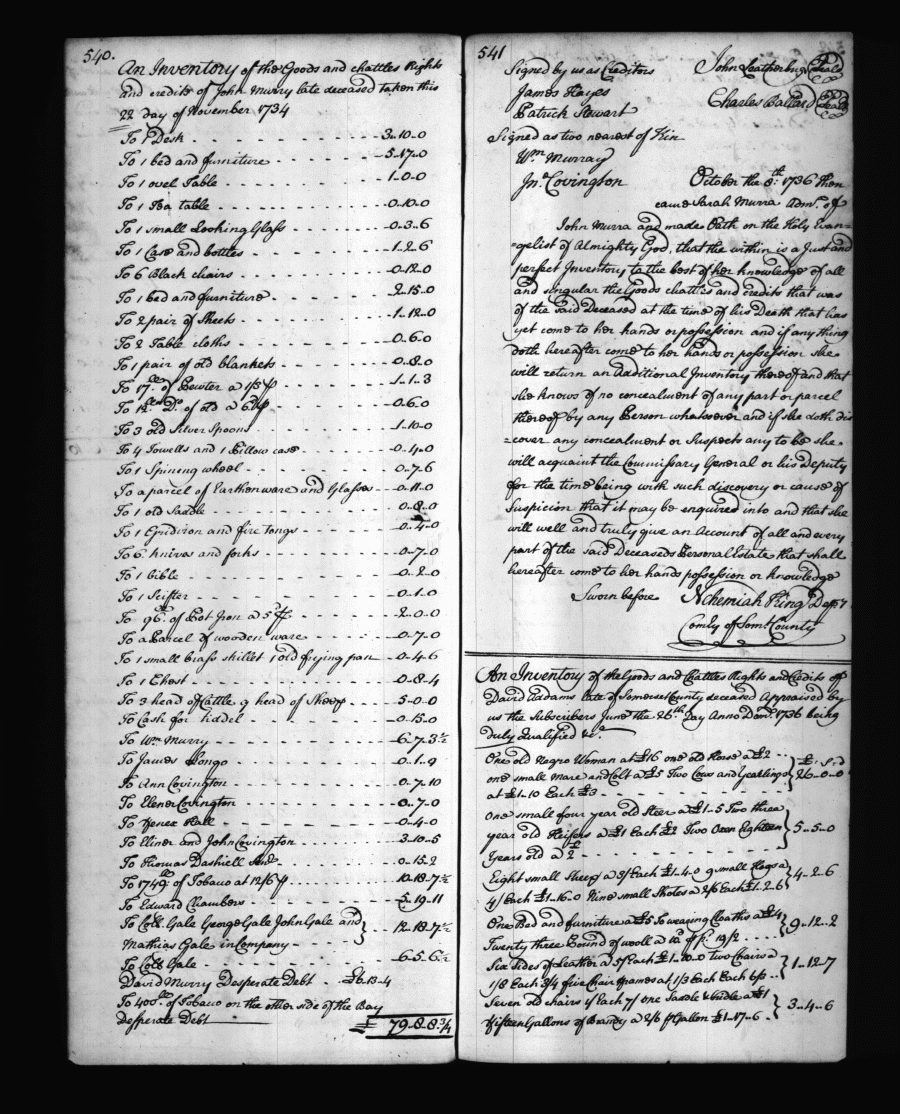 540.
An Inventory of the Goods and chattles Rights
and credits of John Murry late deceased taken this
22 day of November 1734
To 1 Desk - - - 3..10..0
To 1 bed and furniture - - - 5..17..0
To 1 ovel Table - - - 1..0..0
To 1 Tea table - - - 0..10..0
To 1 small Looking Glass - - - 0..3..6
To 1 Case and bottles - - - 1..2..6
To 6 Black chairs - - - 0..12..0
To 1 bed and furniture - - - 2..15..0
To 2 pair of Sheets - - - 1..12..0
To 2 Table cloths - - - 0..6..0
To 1 pair of old blankets - - - 0..8..0
To 17 lb of Pewter a 1/3 p - - - 1..1..3
To 12 lb Do. of old a 6d p - - - 0..6..0
To 3 old Silver Spoons - - - 1..10..0
To 4 Towells and 1 Pillow case - - - 0..4..0
To 1 Spining wheel - - - 0..7..6
To a parcel of Earthenware and Glasses - - - 0..11..0
To 1 old Saddle - - - 0..8..0
To 1 Gridiron and fire tongs - - - 0..4..0
To 6 knives and forks - - - 0..7..0
To 1 bible - - - 0..2..0
To 1 Seifter - - - 0..1..0
To 96 lb of Pot Iron a 5d p - - - 2..0..0
To a Parcel of wooden ware - - - 0..7..0
To 1 small brass skillet 1 old frying pan - - - 0..4..6
To 1 Chest - - - 0..8..4
To 3 head of Cattle 9 head of Sheep - - - 5..0..0
To Cash for fiddel - - - 0..15..0
To Wm. Murry - - - 6..7..3½
To James Longo - - - 0..1..9
To Ann Covington - - - 0..7..10
To Elener Covington - - - 0..7..0
To Hall - - - 0..4..0
To Eliner and John Covington - - - 3..10..5
To Thomas Dashiell - - - 0..15..2
To 1749 lb of Tobaco at 12/6 p - - - 10..18..7½
To Edward Chambers - - - 5..19..11
To Coll. Gale George Gale John Gale and } 12..18..7½
Mathias Gale in Company -
To Coll Gale - - - 6..5..6½
David Murry Desperate Debt - - £6..13..4
To 400 lb of Tobaco on the other side of the Bay
Desperate Debt
£ 79..8..8¾
541
Signed by us as Creditors John Leatherbury Seal
James Hayes Charles Ballard Seal
Patrick Stewart
Signed as two nearest of Kin
Wm. Murray
Jno. Covington October the 8th: 1736 then
came Sarah Murra Admx. of
John Murra and made Oath on the Holy Evan=
=gelist of Almighty God, that the within is a Just and
perfect Inventory to the best of her knowledge of all
and singular the Goods chattles and credits that was
of the said Deceased at the time of his Death that has
yet come to her hands or possession and if any thing
doth hereafter come to her hands or possession she
will return an Additional Inventory thereof and that
she knows of no concealment of any part or parcel
thereof by any Person whatsoever and if she doth dis
=cover any concealment or Suspects any to be she
will acquaint the Commissary General or his Deputy
for the time being with such discovery or cause of
Suspicion that it may be enquired into and that she
will well and truly give an Account of all and every
part of the said Deceaseds Personal Estate that shall
hereafter come to her hands possession or knowledge
Sworn before Nehemiah King Depty
Comly of Somt. County
An Inventory of the Goods and Chattles Rights and Credits of
David Addams late of Somerset County deceased Appraised by
us the Subscribers June the 26th Day Anno Dom. 1736 being
Duly Qualified &c.
One old Negro Woman at £16 one old Horse a £2 - -
one small mare and Colt a £5 Two Cows and Yearlings } £ : S : d 26..0..0
at £1..10 Each £3 - - -
One small four year old Steer a £1..5 Two three
year old Heifers a £1 Each £2 Two Oxen Eighteen } 5..5..0
Years old a £2 - - -
Eight small Sheep a 3/ Each £1..4..0 9 small Hogs a } 4..2..6
4/ Each £1..16..0 Nine small Shotes a 2/6 Each £1..2..6
One Bed and furniture a £5 To wearing Cloaths a £4 } 9..12..2
Twenty three Pound of wooll a 10d p lb. 19/2 - - -
Six Sides of Leather a 5/ Each £1..10..0 two Chairs a } 1..12..7
1/8 Each 3/4 five Chair frames at 1/3 Each
Seven old chairs 4/ Each 7/ one Saddle & bridle a £1 } 3..4..6
Fifteen Gallons of Brandy a 2/6 p Gallon £1..17..6 -